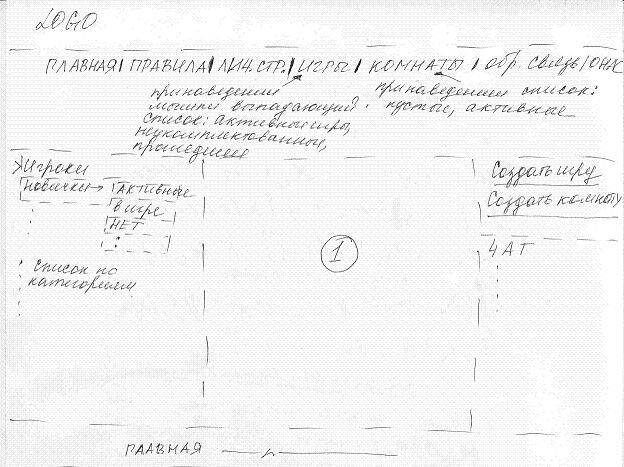 LOGO
ГЛАВНАЯ | ПРАВИЛА | ЛИЧ. СТР. | ИГРЫ | КОМНАТЫ | обр. связь |
при наведении
мышки выпадающий
список: активные игры,
неукомплектованные,
прошедшие
при наведении список:
пустые, активные
Игроки
новички → АКТИВНЫЕ
в игре
НЕТ
список по
категориям
1
Создать игру
Создать комнату
ЧАТ
ГЛАВНАЯ